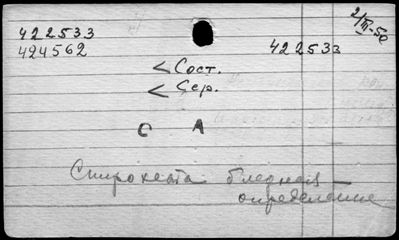 2/III-50
422533
424562
422533
< Сост.
< Сер.
С А
Спирохета бледная —
определение